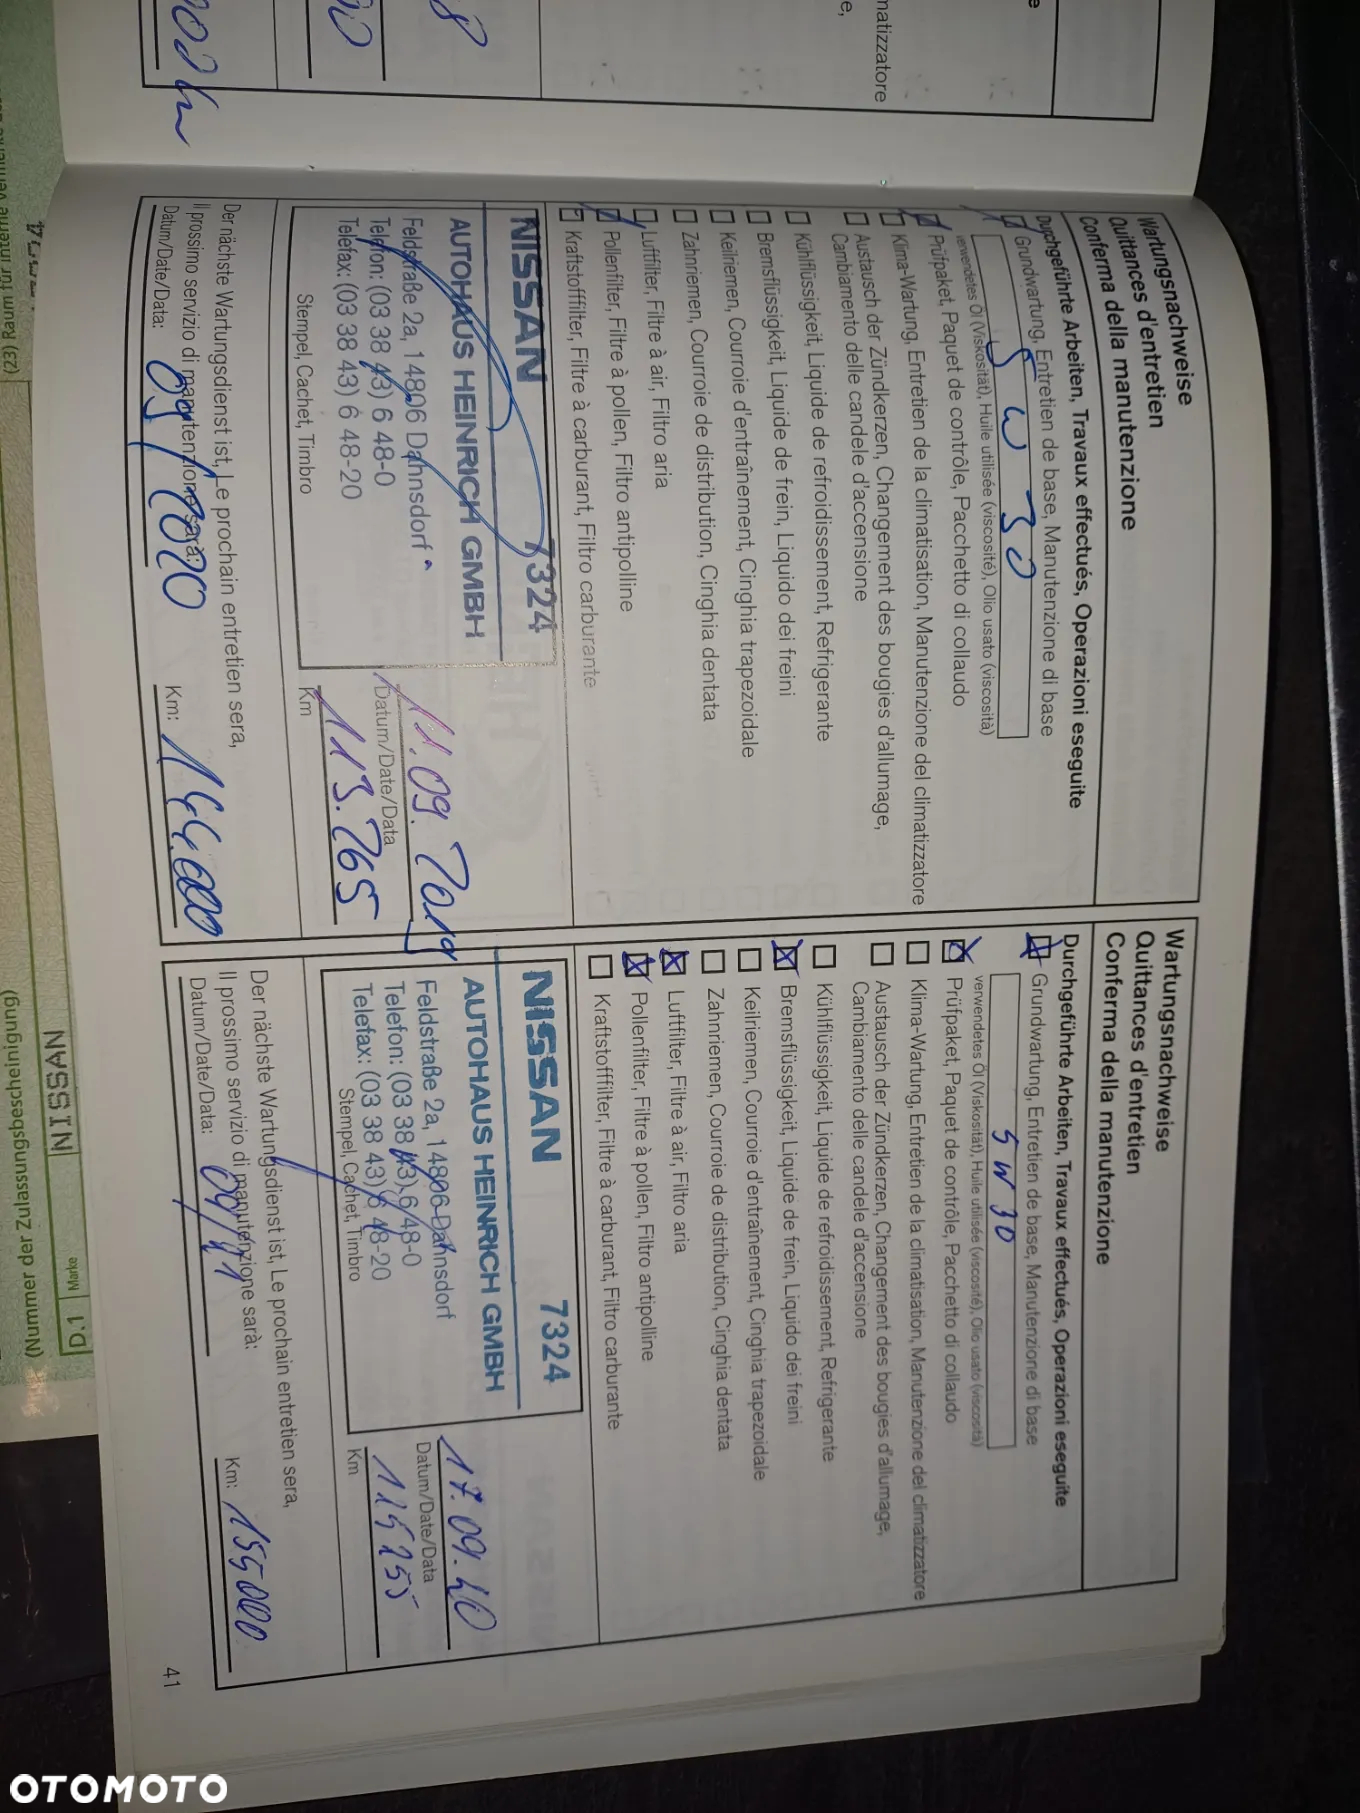 matizzatore
e,
Wartungsnachweise
Quittances d'entretien
Conferma della manutenzione
Durchgeführte Arbeiten, Travaux effectués, Operazioni eseguite
Grundwartung, Entretien de base, Manutenzione di base
5 W 30
verwendetes Öl (Viskosität), Huile utilisée (viscosité), Olio usato (viscosità)
Prüfpaket, Paquet de contrôle, Pacchetto di collaudo
Klima-Wartung, Entretien de la climatisation, Manutenzione del climatizzatore
Austausch der Zündkerzen, Changement des bougies d'allumage,
Cambiamento delle candele d'accensione
Kühlflüssigkeit, Liquide de refroidissement, Refrigerante
Bremsflüssigkeit, Liquide de frein, Liquido dei freini
Keilriemen, Courroie d'entraînement, Cinghia trapezoidale
Zahnriemen, Courroie de distribution, Cinghia dentata
Luftfilter, Filtre à air, Filtro aria
Pollenfilter, Filtre à pollen, Filtro antipolline
Kraftstofffilter, Filtre à carburant, Filtro carburante
NISSAN 7324
AUTOHAUS HEINRICH GMBH
Feldstraße 2a, 14806 Dahnsdorf
Telefon: (03 38 43) 6 48-0
Telefax: (03 38 43) 6 48-20
Stempel, Cachet, Timbro
11.09.2019
Datum/Date/Data
113.765
Km
Der nächste Wartungsdienst ist, Le prochain entretien sera,
Il prossimo servizio di manutenzione sarà:
Datum/Date/Data: 09/2020
Km: 144.000
Wartungsnachweise
Quittances d'entretien
Conferma della manutenzione
Durchgeführte Arbeiten, Travaux effectués, Operazioni eseguite
Grundwartung, Entretien de base, Manutenzione di base
5 W 30
verwendetes Öl (Viskosität), Huile utilisée (viscosité), Olio usato (viscosità)
Prüfpaket, Paquet de contrôle, Pacchetto di collaudo
Klima-Wartung, Entretien de la climatisation, Manutenzione del climatizzatore
Austausch der Zündkerzen, Changement des bougies d'allumage,
Cambiamento delle candele d'accensione
Kühlflüssigkeit, Liquide de refroidissement, Refrigerante
Bremsflüssigkeit, Liquide de frein, Liquido dei freini
Keilriemen, Courroie d'entraînement, Cinghia trapezoidale
Zahnriemen, Courroie de distribution, Cinghia dentata
Luftfilter, Filtre à air, Filtro aria
Pollenfilter, Filtre à pollen, Filtro antipolline
Kraftstofffilter, Filtre à carburant, Filtro carburante
NISSAN 7324
AUTOHAUS HEINRICH GMBH
Feldstraße 2a, 14806 Dahnsdorf
Telefon: (03 38 43) 6 48-0
Telefax: (03 38 43) 6 48-20
Stempel, Cachet, Timbro
17.09.20
Datum/Date/Data
Km
Der nächste Wartungsdienst ist, Le prochain entretien sera,
Il prossimo servizio di manutenzione sarà:
Datum/Date/Data: 09/21
Km: 155000
41
NISSAN
D.1
Marke
(Nummer der Zulassungsbescheinigung)
(23) Raum für interne
OTOMOTO